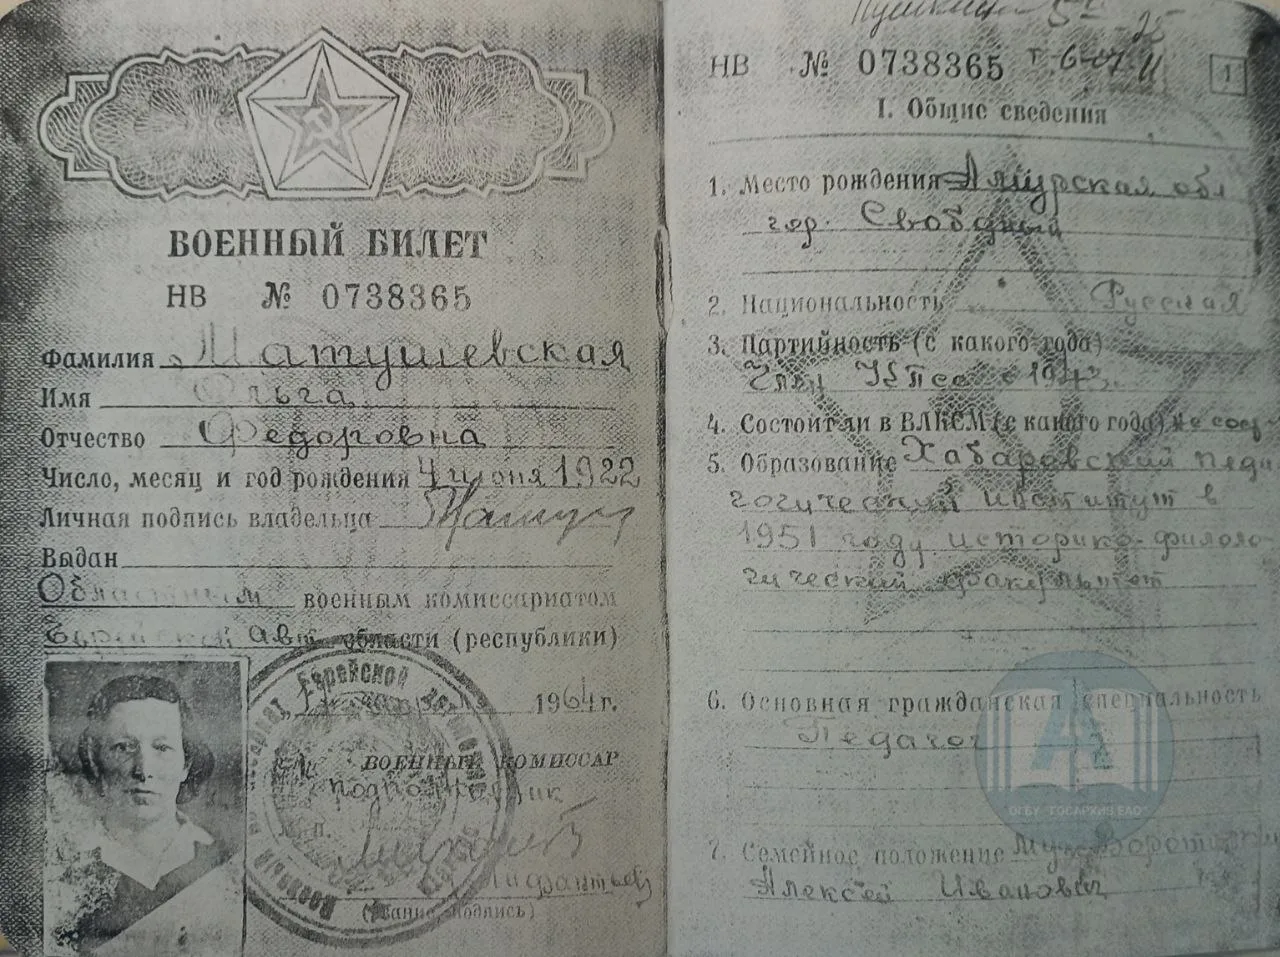 ВОЕННЫЙ БИЛЕТ
НВ № 0738365
Фамилия Матушевская
Имя Ольга
Отчество Федоровна
Число, месяц и год рождения 4 июня 1922
Личная подпись владельца
Выдан
Областным военным комиссариатом
Еврейской Авт. области (республики)
1964 г.
ВОЕННЫЙ КОМИССАР
подполковник
(звание, подпись)
Еврейской
Военный
Пушкина
НВ № 0738365
1
I. Общие сведения
1. Место рождения Амурская обл
гор. Свободный
2. Национальность Русская
3. Партийность (с какого года)
Член КПСС с
4. Состоит ли в ВЛКСМ (с какого года) не сос
5. Образование Хабаровский педа
гогический институт в
1951 году историко-филоло-
гический факультет
6. Основная гражданская специальность
Педагог
7. Семейное положение Муж
Алексей Иванович
ОГБУ "ГОСАРХИВ ЕАО"